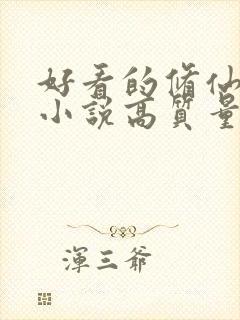 好看的脩仙
小說高質量
渾三爺